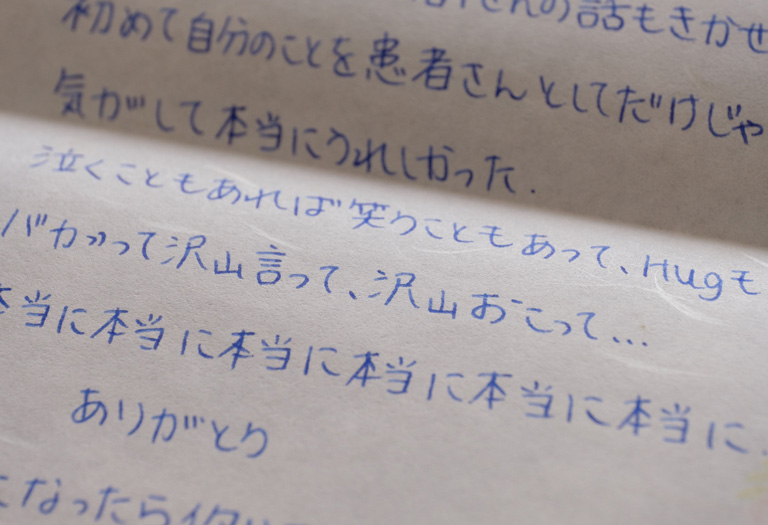 さんの話もきかせ
初めて自分のことを患者さんとしてだけじゃ
気がして本当にうれしかった.
泣くこともあれば笑うこともあって、Hugも
バカ”って沢山言って、沢山おこって...
本当に本当に本当に本当に本当に本当に.
ありがとう
になったら